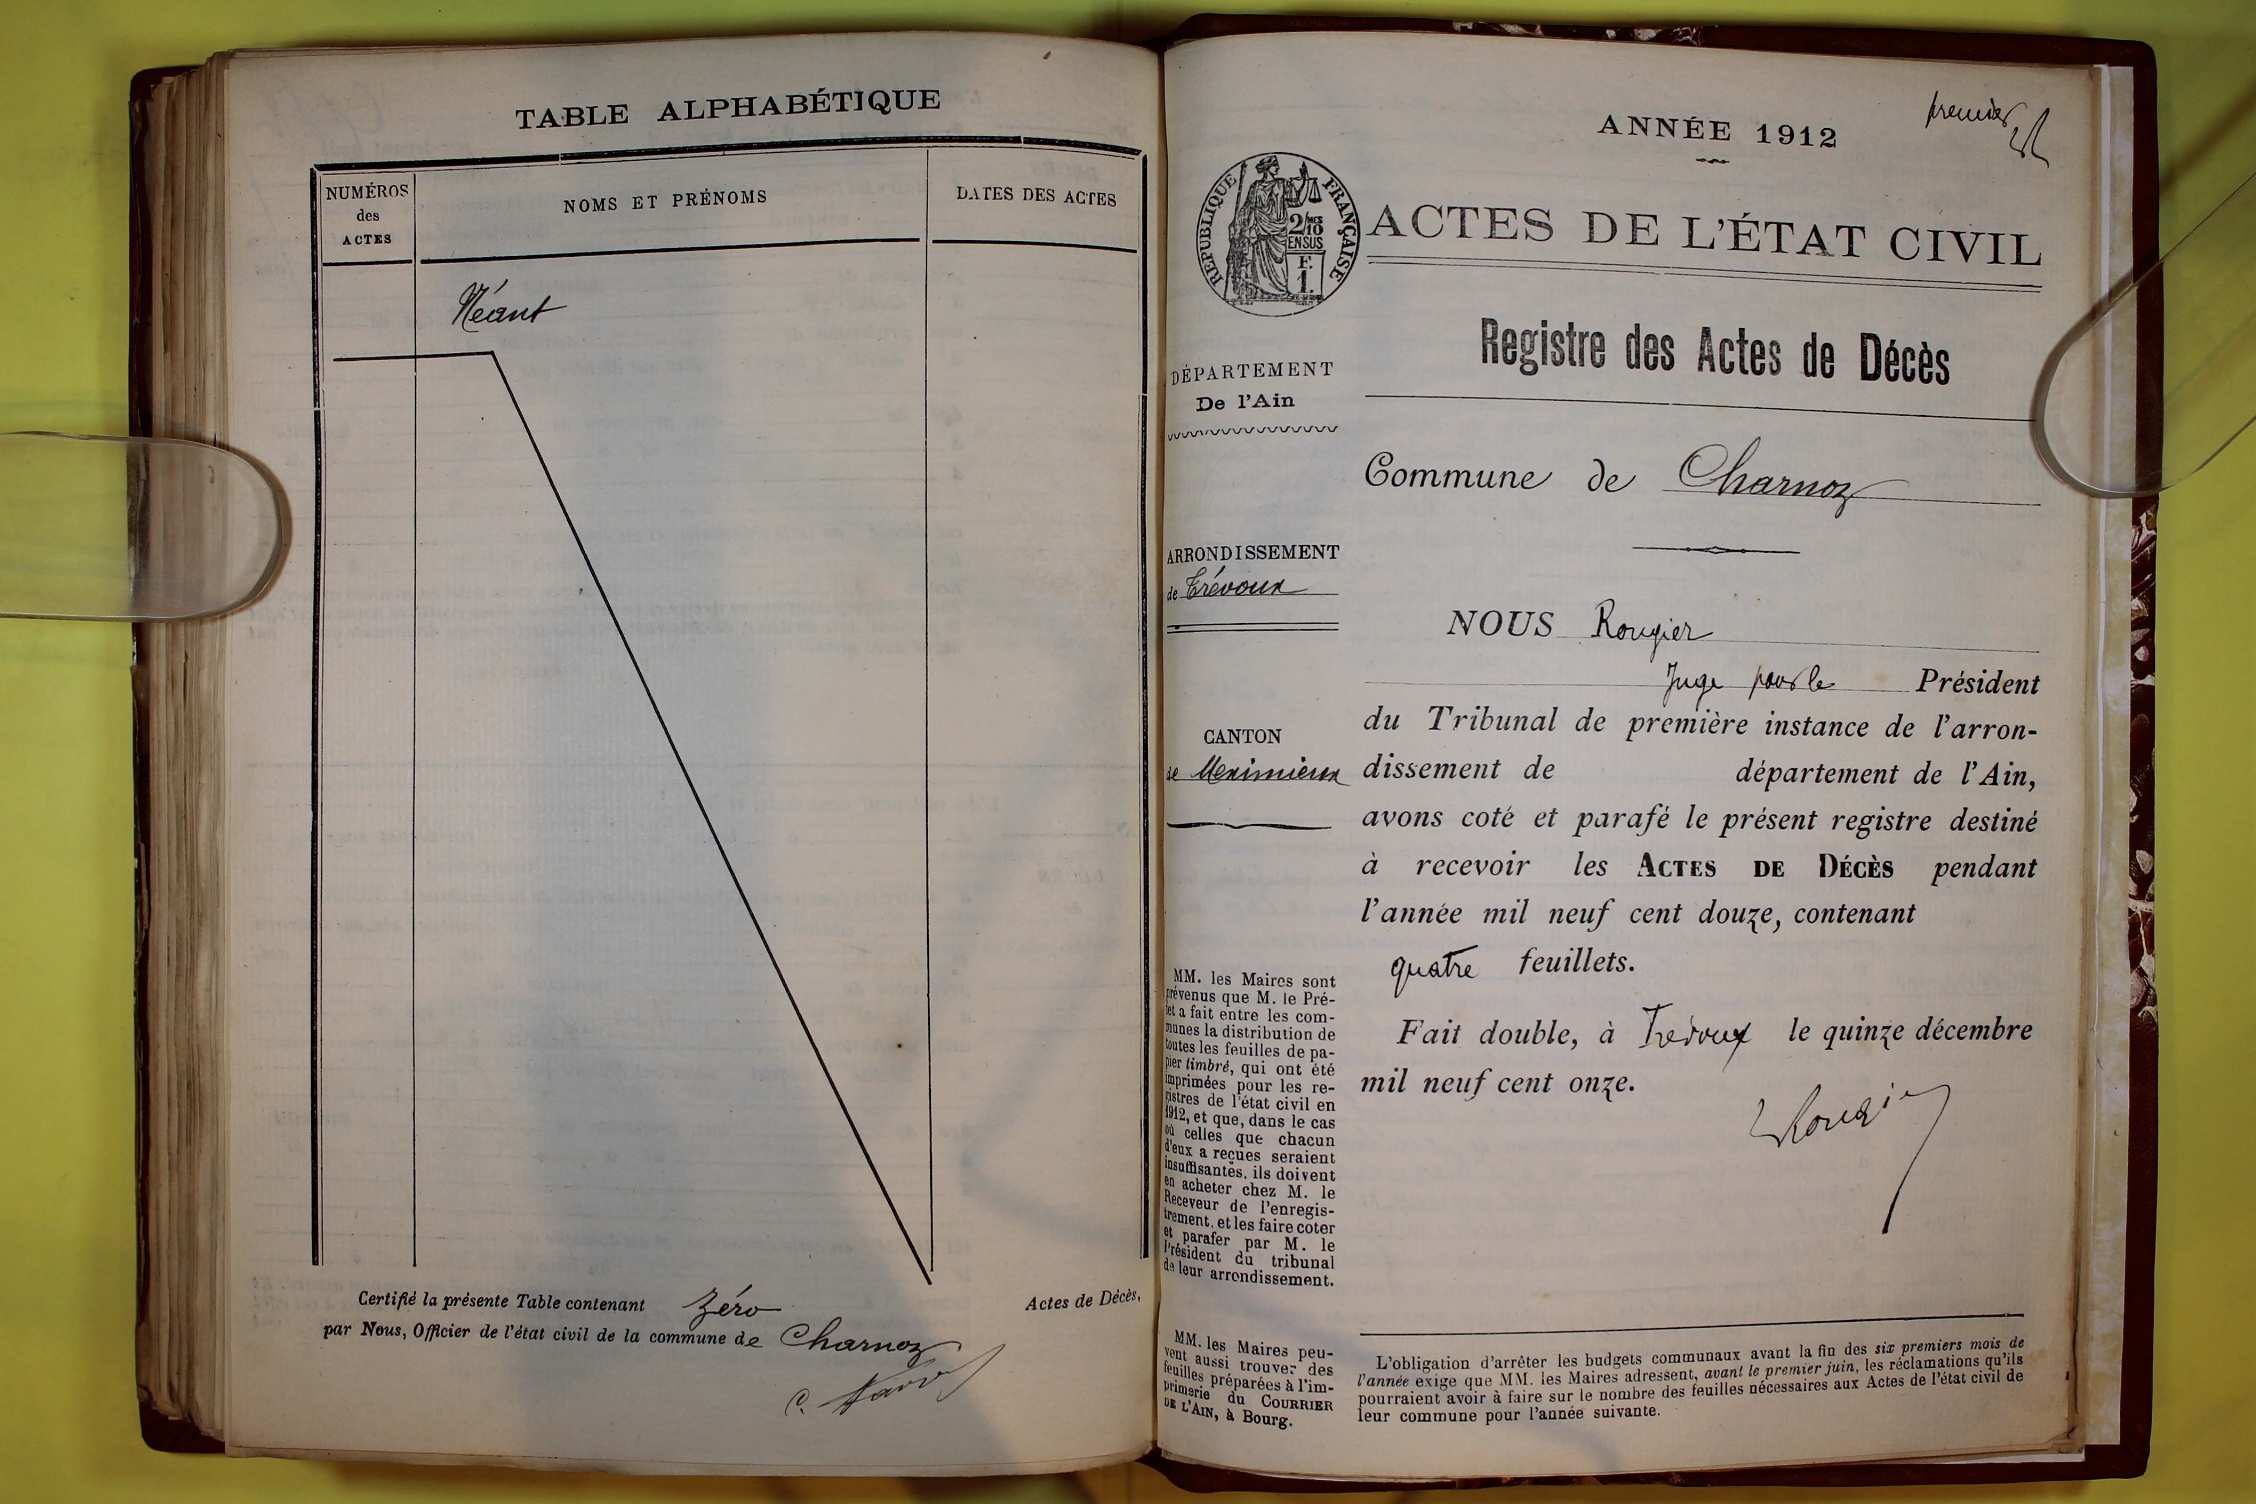 TABLE ALPHABÉTIQUE
NUMÉROS
des
ACTES
NOMS ET PRÉNOMS
DATES DES ACTES
Néant
Certifié la présente Table contenant zéro Actes de Décès,
par Nous, Officier de l'état civil de la commune de Charnoz
premier
ANNÉE 1912
RÉPUBLIQUE FRANÇAISE
2/10
EN SUS
F.
1.
ACTES DE L'ÉTAT CIVIL
Registre des Actes de Décès
DÉPARTEMENT
De l'Ain
Commune de Charnoz
ARRONDISSEMENT
de Trévoux
CANTON
de Meximieux
MM. les Maires sont
prévenus que M. le Pré-
fet a fait entre les com-
munes la distribution de
toutes les feuilles de pa-
pier timbré, qui ont été
imprimées pour les re-
gistres de l'état civil en
1912, et que, dans le cas
où celles que chacun
d'eux a reçues seraient
insuffisantes, ils doivent
en acheter chez M. le
Receveur de l'enregis-
trement, et les faire coter
et parafer par M. le
Président du tribunal
de leur arrondissement.
MM. les Maires peu-
vent aussi trouver des
feuilles préparées à l'im-
primerie du COURRIER
DE L'AIN, à Bourg.
NOUS Rougier
Juge pour le Président
du Tribunal de première instance de l'arron-
dissement de département de l'Ain,
avons coté et parafé le présent registre destiné
à recevoir les ACTES DE DÉCÈS pendant
l'année mil neuf cent douze, contenant
quatre feuillets.
Fait double, à Trévoux le quinze décembre
mil neuf cent onze.
Rougier
L'obligation d'arrêter les budgets communaux avant la fin des six premiers mois de
l'année exige que MM. les Maires adressent, avant le premier juin, les réclamations qu'ils
pourraient avoir à faire sur le nombre des feuilles nécessaires aux Actes de l'état civil de
leur commune pour l'année suivante.